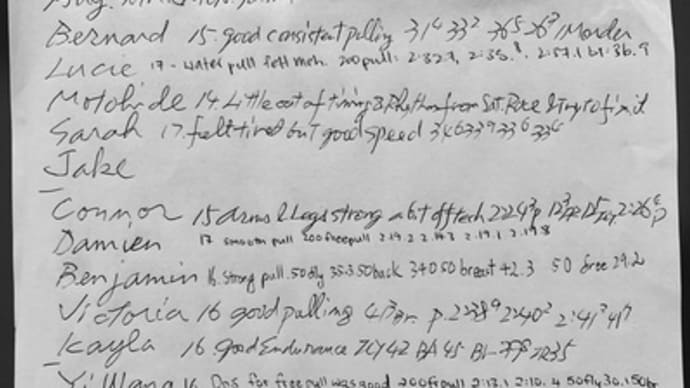 Bernard 15. good consistent pulling 31⁴ 33² 36⁵ 26⁹/Monden
Lucie 17 - water pull felt meh. 200 pull: 2:32.7, 2:35.8, 2:57.1 61:36.9
Motohide 14. Little out of timing & Rhythm from Sat. Race & Try to fix it
Sarah 17. felt tired but good speed 34⁶ 33⁹ 33⁶ 33⁶
Jake
Connor 15 arms & Legs strong a bit off tech 2:24³p 2:26⁶p
Damien 17 smooth pull 200 free pull 2.19.2 2.19.3 2.19.1 2.19.8
Benjamin 16. strong pull. 50 fly 35.3 50 back 34.0 50 breast 42.3 50 free 29.2
Victoria 16 good pulling 41³Br. p. 2:38⁹ 2:40² 2:41³ 41⁷
Kayla 16. Good Endurance 42 BA 45 Br
Yi Wang 16 for free pull was good 200 free pull 2:13.1 2:10.4 50 fly 30.